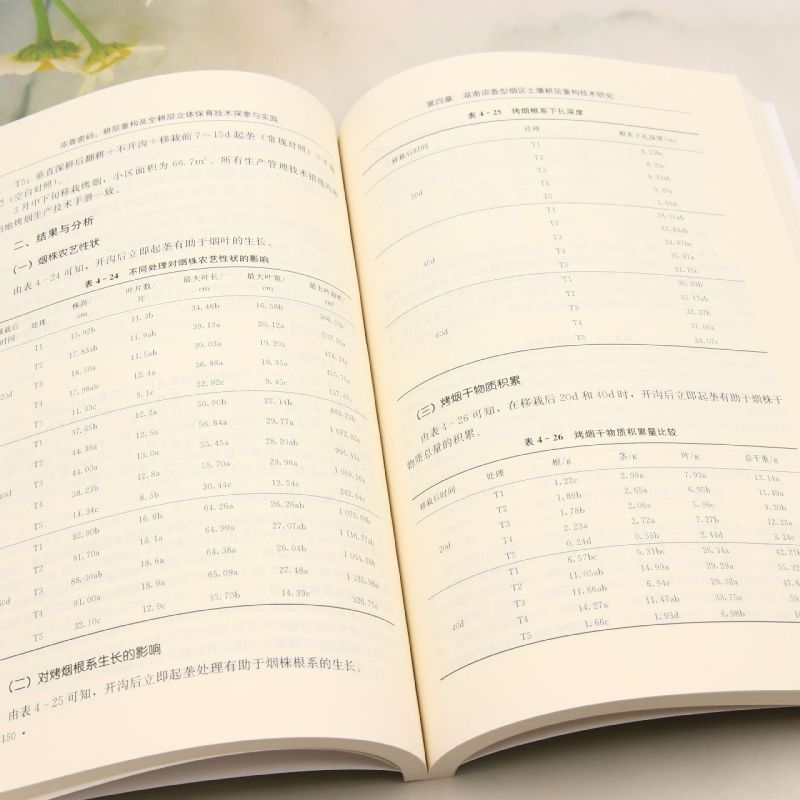 浓香密码：耕层重构及全耕层立体保育技术探索与实践
T5：垂直深耕后翻耕＋不开沟＋移栽前7～15d起垄（常规对照）＋不施
（空白对照）。
3月中下旬移栽烤烟，小区面积为66.7m²。所有生产管理技术措施
地烤烟生产技术手册一致。
二、结果与分析
（一）烟株农艺性状
由表4-24可知，开沟后立即起垄有助于烟叶的生长。
表4-24 不同处理对烟株农艺性状的影响
移栽后时间 处理 株高/cm 叶片数/片 最大叶长/cm 最大叶宽/cm 最大叶面积/cm²
T1 15.92b 11.3b 34.46b 16.58b
T2 17.83ab 11.9ab 39.13a 20.12a
20d T3 18.50a 11.5ab 39.03a 19.20a
T4 17.98ab 12.4a 36.88a 19.35a
T5 11.33c 9.1c 22.92c 9.45c
T1 37.65b 12.2a 50.90b 27.14b
T2 44.36a 12.5a 56.64a 29.77a
40d T3 44.00a 13.0a 55.45a 28.20ab
T4 38.23b 12.8a 55.70a 29.96a
T5 14.34c 8.5b 30.44c 12.54c 242.64c
T1 82.90b 16.6b 64.26a 26.26ab
T2 91.70a 18.1a 64.99a 27.07ab
60d T3 88.00ab 18.6a 64.38a 26.04b
T4 91.00a 18.9a 65.09a 27.48a
T5 32.10c 12.9c 35.70b 14.39c 326.75c
（二）对烤烟根系生长的影响
由表4-25可知，开沟后立即起垄处理有助于烟株根系的生长。
150 •
第四章 湖南浓香型烟区土壤耕层重构技术研究
表4-25 烤烟根系下扎深度
移栽后时间 处理 根系下扎深度/cm
T1
T2
20d T3
T4 9.20a
T5 5.60d
T1 28.07ab
T2 27.83ab
40d T3 24.87bc
T4
T5 21.70c
T1 30.83b
T2 35.77ab
60d T3
T4 37.00a
T5 24.07c
（三）烤烟干物质积累
由表4-26可知，在移栽后20d和40d时，开沟后立即起垄有助于烟株干
物质总量的积累。
表4-26 烤烟干物质积累量比较
移栽后时间 处理 根/g 茎/g 叶/g 总干重/g
T1 1.22c 2.99a 7.93a 12.14a
T2 1.89b 2.65a 6.95b 11.49a
20d T3 1.78b 2.06a 5.36c 9.20b
T4 2.23a 2.72a 7.27b 12.22a
T5 0.24d 0.56b 2.44d 3.24c
T1 6.57bc 9.31bc 26.34a
T2 11.05ab 14.99a 29.29a
40d T3 11.66ab 6.94c 29.02a
T4 14.27a 11.47ab 33.75a
T5 1.66c 1.93d 6.98b